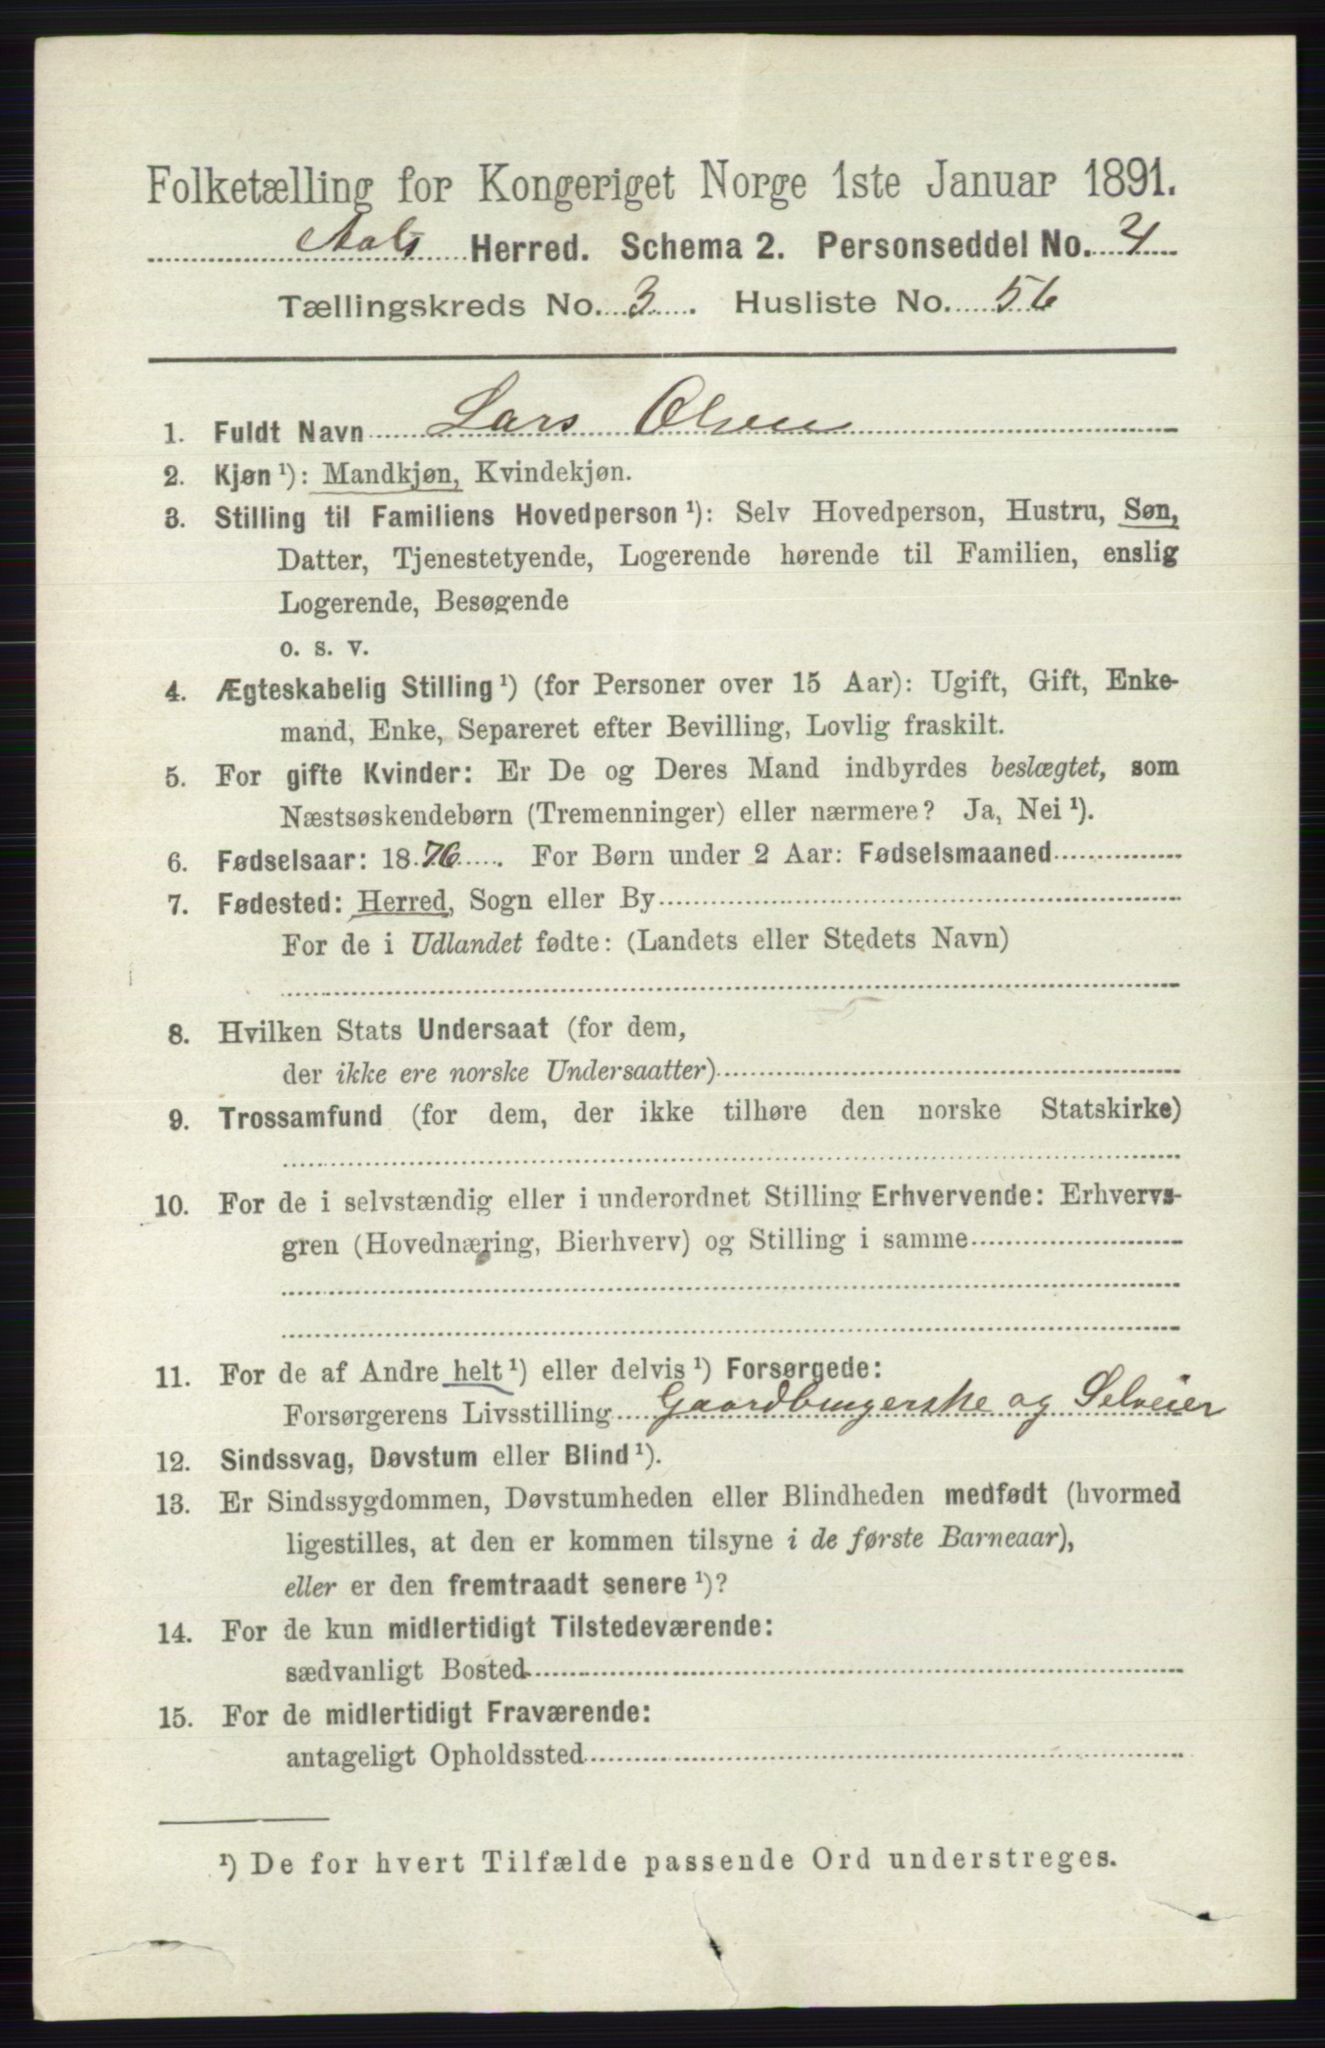 Folketælling for Kongeriget Norge 1ste Januar 1891.
Aals Herred. Schema 2. Personseddel No. 4
Tællingskreds No. 3. Husliste No. 56
1. Fuldt Navn Lars Olsen
2. Kjøn¹): Mandkjøn, Kvindekjøn.
3. Stilling til Familiens Hovedperson¹): Selv Hovedperson, Hustru, Søn,
Datter, Tjenestetyende, Logerende hørende til Familien, enslig
Logerende, Besøgende
o. s. v.
4. Ægteskabelig Stilling¹) (for Personer over 15 Aar): Ugift, Gift, Enke-
mand, Enke, Separeret efter Bevilling, Lovlig fraskilt.
5. For gifte Kvinder: Er De og Deres Mand indbyrdes beslægtet, som
Næstsøskendebørn (Tremenninger) eller nærmere? Ja, Nei¹).
6. Fødselsaar: 1876. For Børn under 2 Aar: Fødselsmaaned
7. Fødested: Herred, Sogn eller By
For de i Udlandet fødte: (Landets eller Stedets Navn)
8. Hvilken Stats Undersaat (for dem,
der ikke ere norske Undersaatter)
9. Trossamfund (for dem, der ikke tilhøre den norske Statskirke)
10. For de i selvstændig eller i underordnet Stilling Erhvervende: Erhvervs-
gren (Hovednæring, Bierhverv) og Stilling i samme
11. For de af Andre helt¹) eller delvis¹) Forsørgede:
Forsørgerens Livsstilling Gaardbrugerske og Selveier
12. Sindssvag, Døvstum eller Blind¹).
13. Er Sindssygdommen, Døvstumheden eller Blindheden medfødt (hvormed
ligestilles, at den er kommen tilsyne i de første Barneaar),
eller er den fremtraadt senere¹)?
14. For de kun midlertidigt Tilstedeværende:
sædvanligt Bosted
15. For de midlertidigt Fraværende:
antageligt Opholdssted
¹) De for hvert Tilfælde passende Ord understreges.